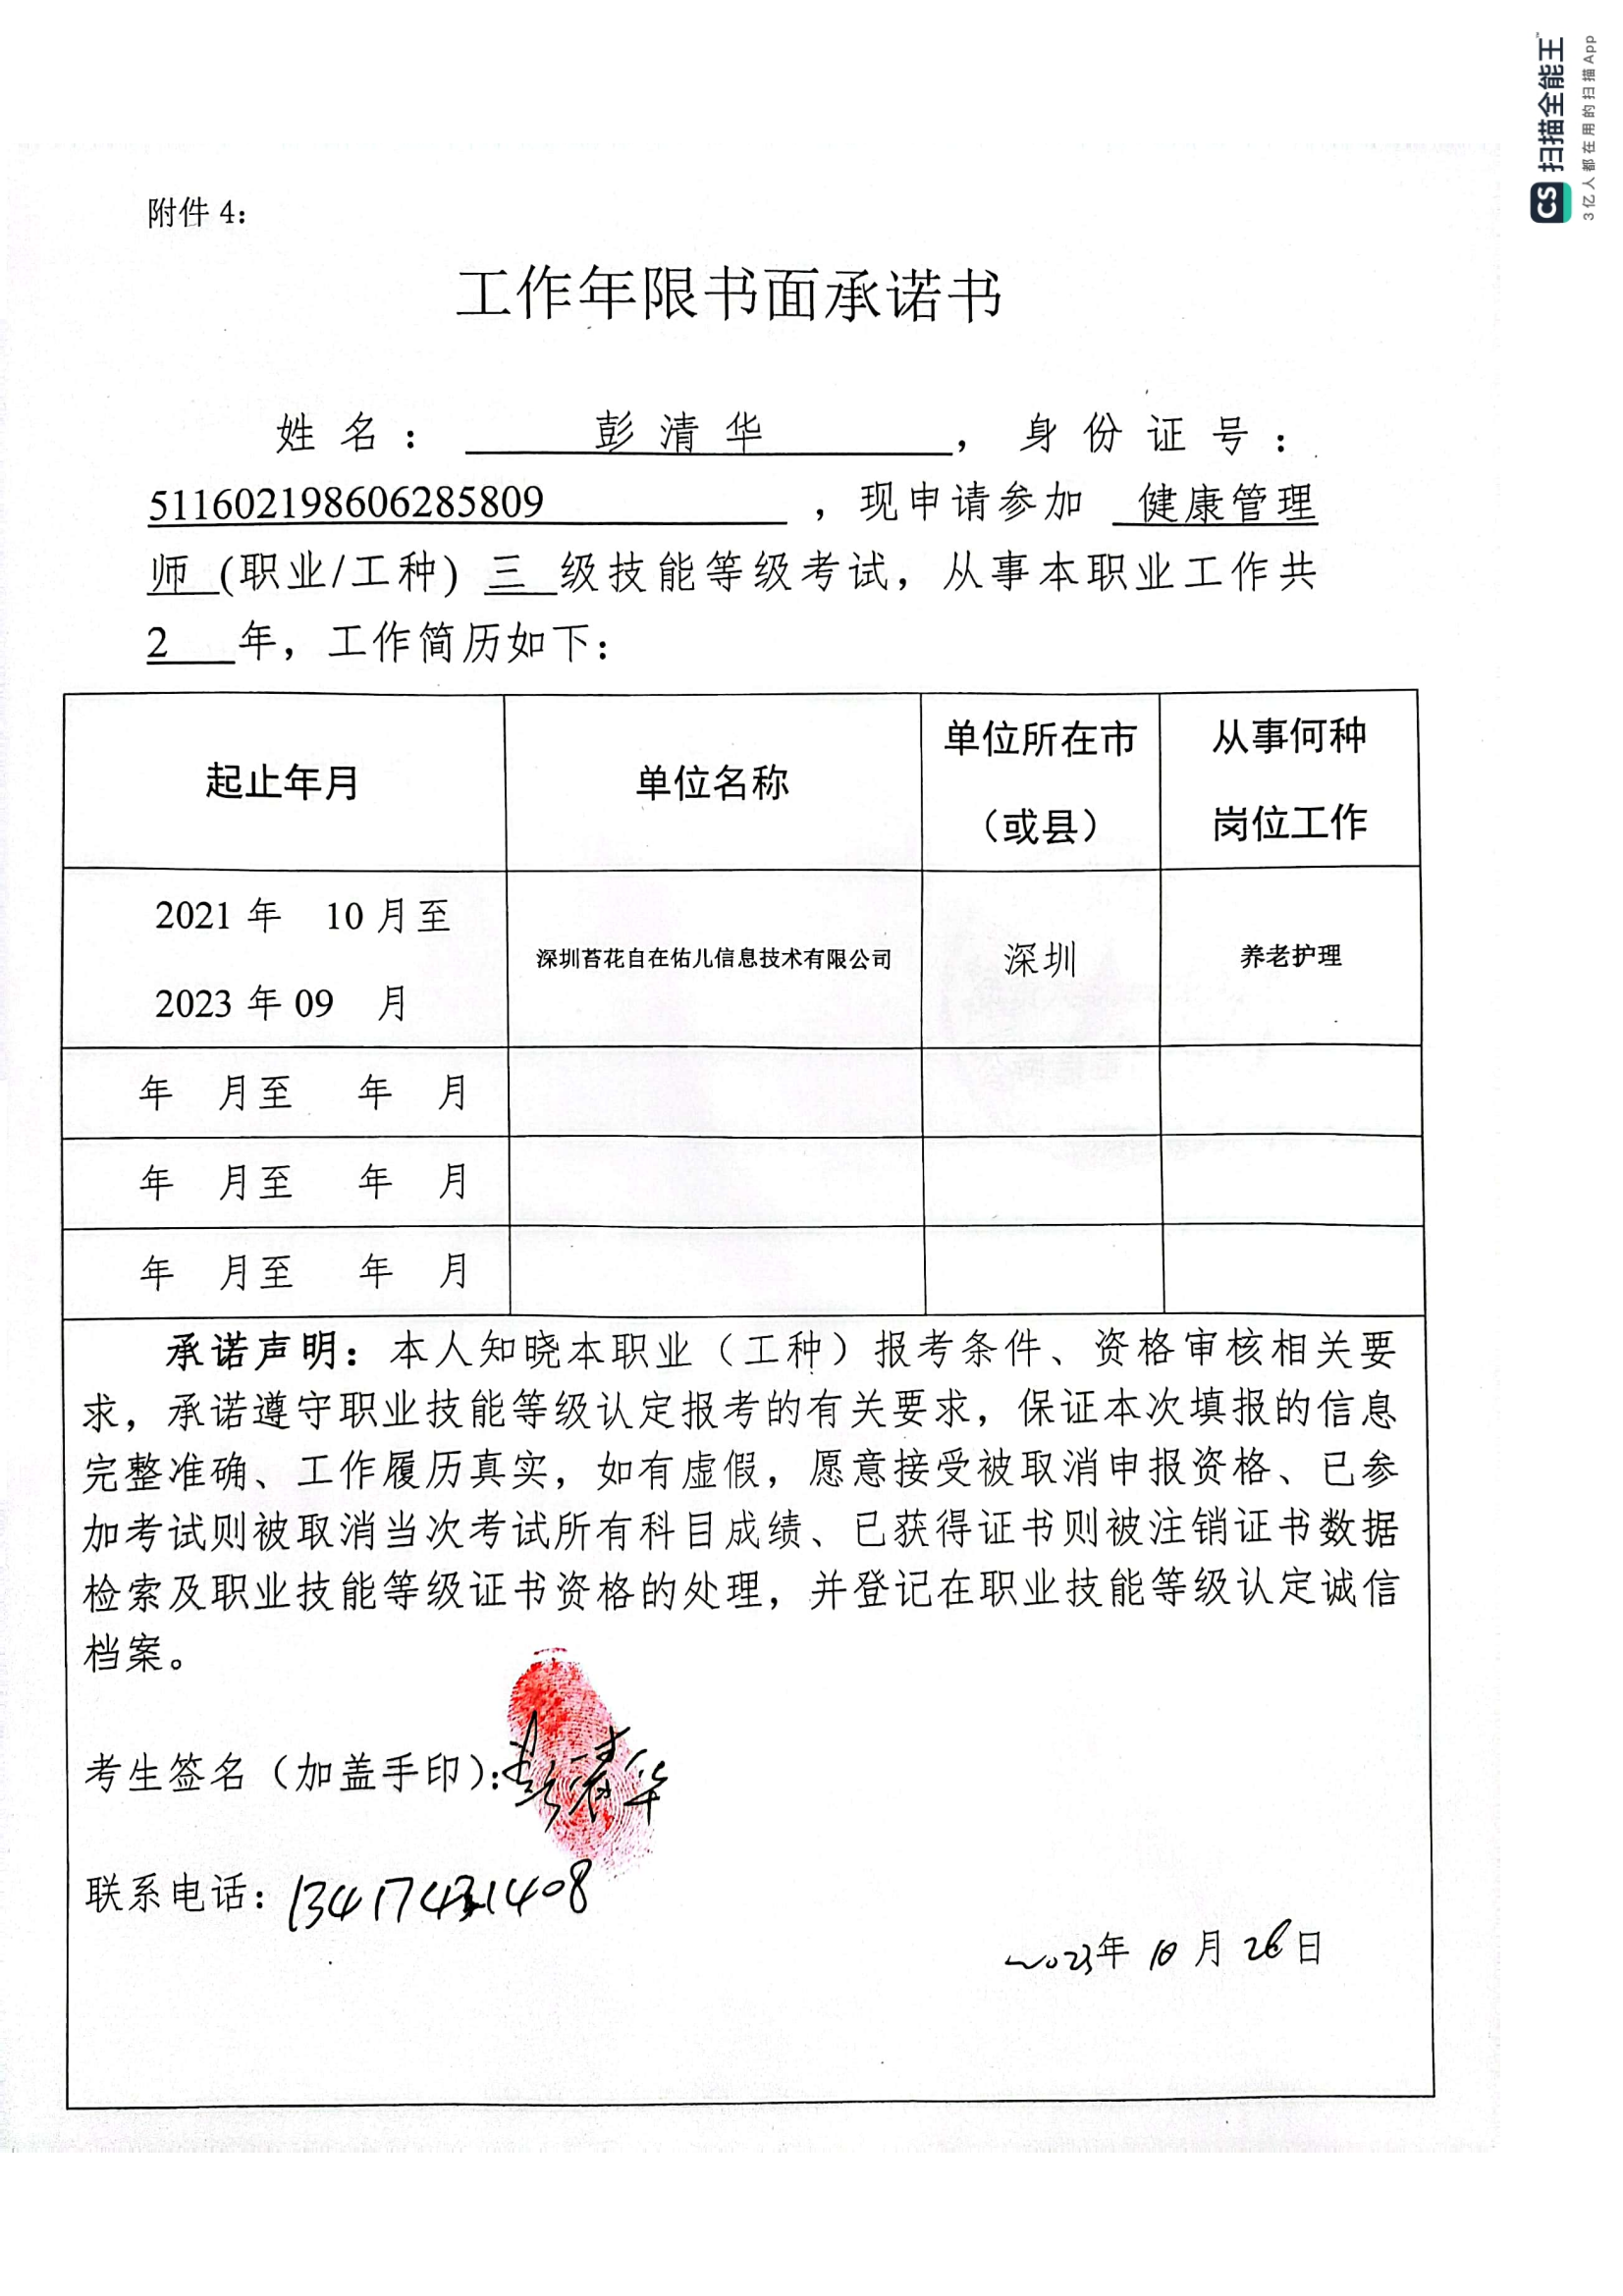 扫描全能王
3亿人都在用的扫描App
附件 4：
工作年限书面承诺书
姓 名 ： 彭 清 华 ， 身 份 证 号 ：
511602198606285809 ，现申请参加 健康管理
师 (职业/工种) 三 级技能等级考试，从事本职业工作共
2 年，工作简历如下：
起止年月 单位名称 单位所在市（或县） 从事何种岗位工作
2021 年 10 月至
2023 年 09 月
深圳苔花自在佑儿信息技术有限公司 深圳 养老护理
年 月至 年 月
年 月至 年 月
年 月至 年 月
承诺声明：本人知晓本职业（工种）报考条件、资格审核相关要
求，承诺遵守职业技能等级认定报考的有关要求，保证本次填报的信息
完整准确、工作履历真实，如有虚假，愿意接受被取消申报资格、已参
加考试则被取消当次考试所有科目成绩、已获得证书则被注销证书数据
检索及职业技能等级证书资格的处理，并登记在职业技能等级认定诚信
档案。
考生签名（加盖手印）：彭清华
联系电话：
2023年 10 月 26 日